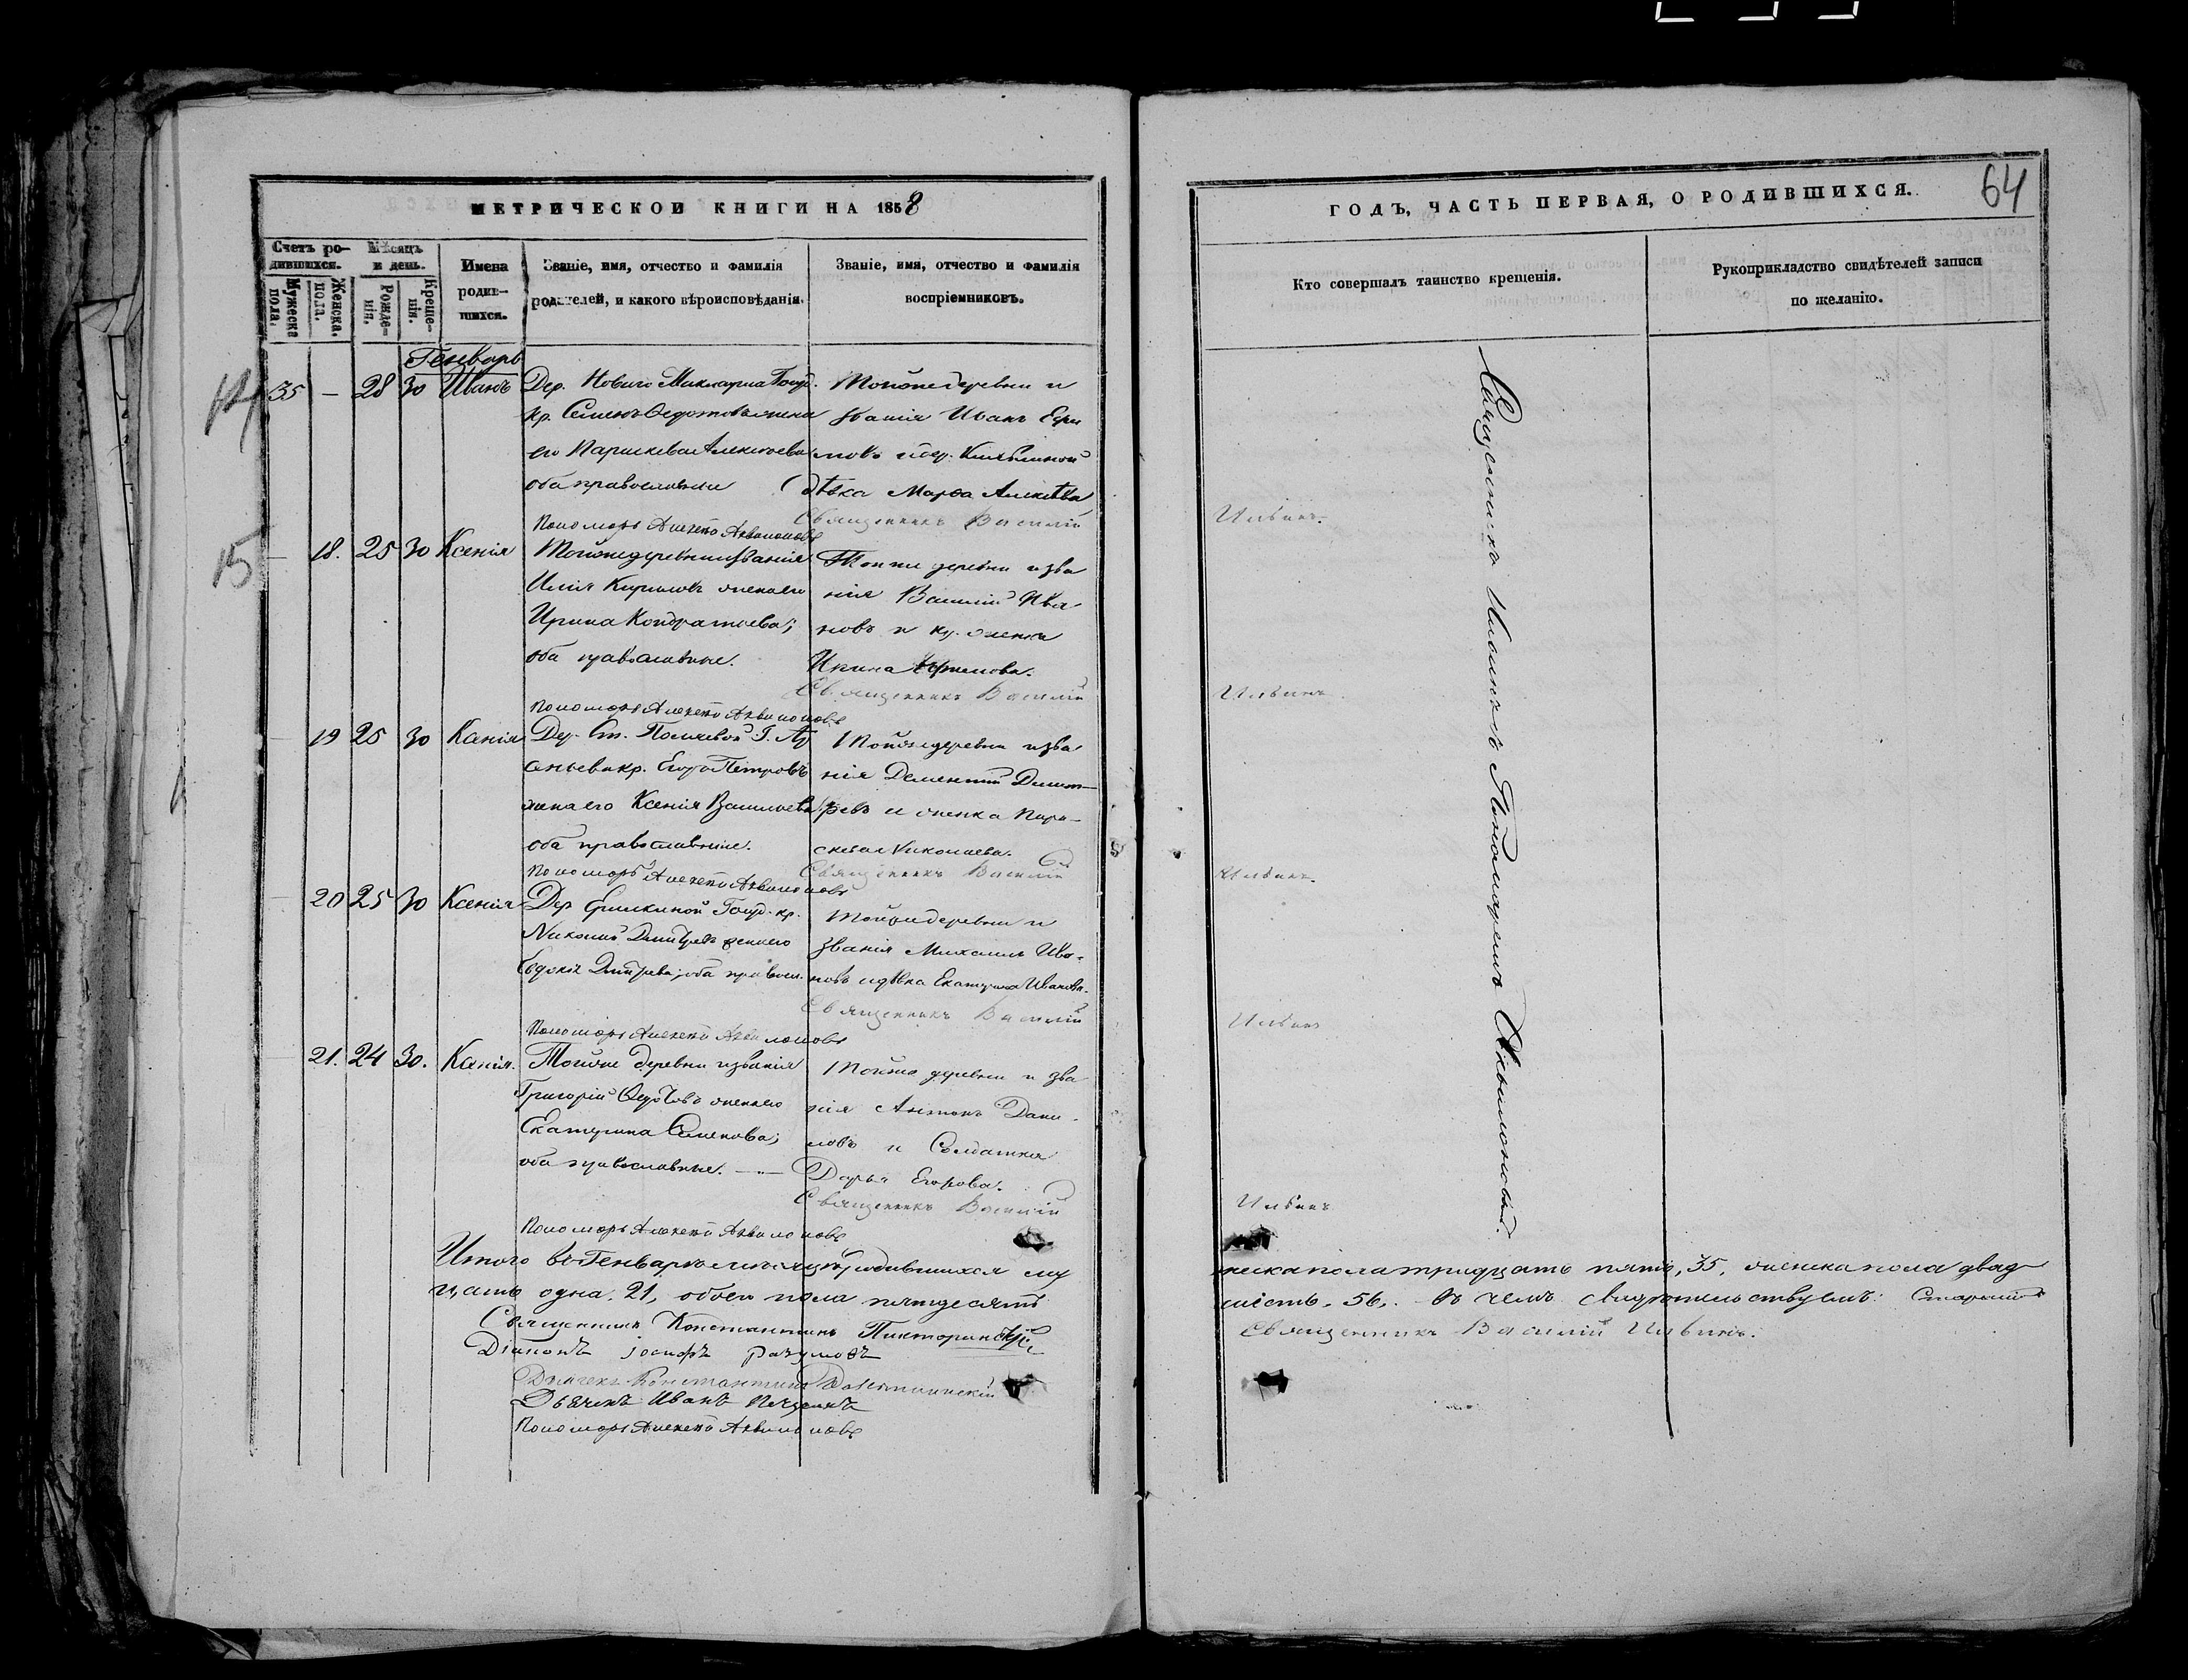 МЕТРИЧЕСКОЙ КНИГИ НА 1858
Счетъ родившихся.
Мѣсяцъ и день.
Имена родившихся.
Званіе, имя, отчество и фамилія родителей, и какого вѣроисповѣданія.
Званіе, имя, отчество и фамилія воспріемниковъ.
Мужеска пола.
Женска. пола.
Рожденія.
Крещенія.
Генварь
14
35 – 28 30 Иванъ
Дер. Новаго Госуд.
кр. Семенъ Ѳедотовъ жена
его Параскева Алексѣева
оба православные
Тойже деревни и
званія Иванъ Ефи
мовъ
дѣвка Марѳа Алексѣева
Священникъ Василій
Пономарь Алексѣй Аквилоновъ
15
18. 25 30 Ксенія
Тойже деревни и званія
Илія Кириловъ жена его
Ирина Кондратьева;
оба православные.
Тойже деревни и зва
нія Василій Ива
новъ и кр. женка
Ирина
Священникъ Василій
Пономарь Алексѣй Аквилоновъ
19 25 30 Ксенія
Дер. Ст. Г.
кр. Егоръ Петровъ
жена его Ксенія Васильева
оба православные.
Тойже деревни и зва
нія Дементій Димит-
ревъ и женка Пара-
скева Николаева.
Священникъ Василій
Пономарь Алексѣй Аквилоновъ
20 25 30 Ксенія
Дер Госуд. кр.
Дмитревъ жена его
Евдокія Дмитрева; оба правосл.
Тойже деревни и
званія Михаилъ Ива-
новъ и дѣвка Екатерина Иванова.
Священникъ Василій
Пономарь Алексѣй Аквилоновъ
21. 24 30. Ксенія.
Тойже деревни и званія
Григорій Ѳедотовъ жена его
Екатерина Семенова;
оба православные.
Тойже деревни и зва
нія Антонъ Дани-
ловъ и Солдатка
Дарья Егорова.
Священникъ Василій
Пономарь Алексѣй Аквилоновъ
Итого въ Генварѣ мѣсяцѣ родившихся му
цать одна. 21, обоего пола пятьдесятъ
Священникъ Константинъ
Діаконъ Іосифъ Разумовъ
Дьячекъ Константинъ
Дьячекъ Иванъ
Пономарь Алексѣй Аквилоновъ
ГОДЪ, ЧАСТЬ ПЕРВАЯ, О РОДИВШИХСЯ.
64
Кто совершалъ таинство крещенія.
Рукоприкладство свидѣтелей записи по желанію.
Священникъ Ильинъ съ Пономаремъ Аквилоновымъ.
Ильинъ.
Ильинъ.
Ильинъ.
Ильинъ
Ильинъ
жеска пола тридцать пять, 35, женска пола двад
шесть. 56. – въ чемъ свидѣтельствуемъ: Старшій
Священникъ Василій Ильинъ.